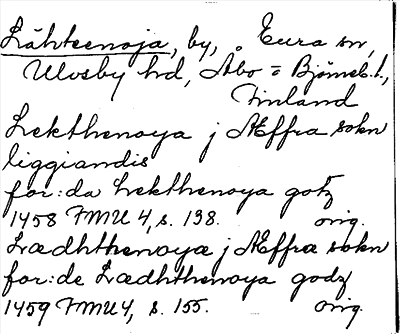 Lähteenoja, by, Eura sn,
Ulvsby hd, Åbo = Björneb. l.,
Finland
Lekthenoya j Æffra sokn
liggiandis
for:da Lekthenoya gotz
1458 FMU 4, s. 138. orig.
Lædhthenoyæ j Æffra sokn
for:de Lædhthenoya godz
1459 FMU 4, s. 155. orig.